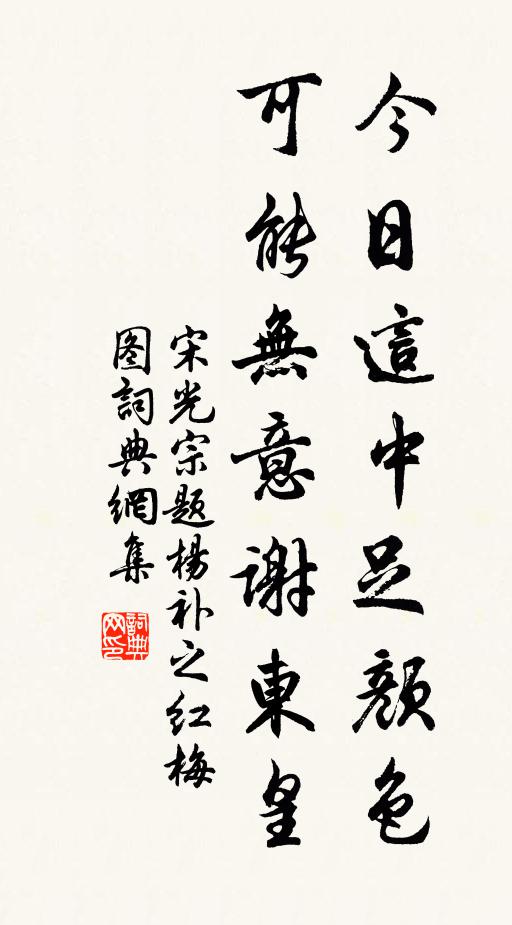 今日這中足顏色
可能無意謝東皇
宋光宗题楊补之红梅
图詞典網集
詞典
网印